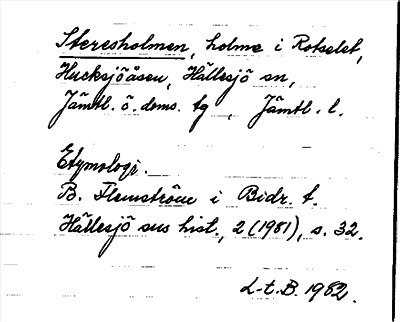 Steresholmen, holme i Rotselet,
Hucksjöåsen, Hällesjö sn,
Jämtl. ö. doms. tg , Jämtl. l.
Etymologi.
B. Flemström i Bidr. t.
Hällesjö sns hist., 2 (1981), s. 32.
L-t.B. 1982.